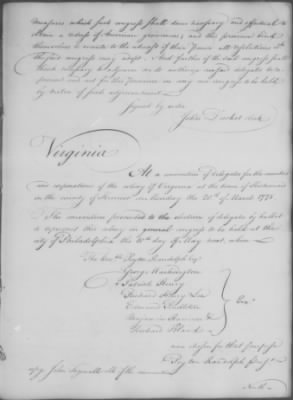 measures which such congress shall deem necessary and effectual to
obtain a redress of American grievances; and this province bind
themselves to execute to the utmost of their Power all resolutions which
the said congress may adopt. And further if the said congress shall
think necessary
represent and act for this Province on any one congress to be held
by virtue of such adjournment
Signed by order
John Ducket clerk
Virginia
At a convention of delegates for the counties
and corporations of the colony of Virginia at the town of Richmond
in the county of Henrico on Monday the 20th of March 1775
The convention proceeded to the election of delegates by ballot
to represent this colony in general congress to be held at the
city of Philadelphia the 10th day of May next, when
The Honble Peyton Randolph esqr
George Washington
Patrick Henry
Richard Henry Lee
Edmund Pendleton
Benjamin Harrison &
Richard Bland
Esqrs
were chosen for that purpose
Peyton Randolph
copy John Tazewell clk of the convention
North